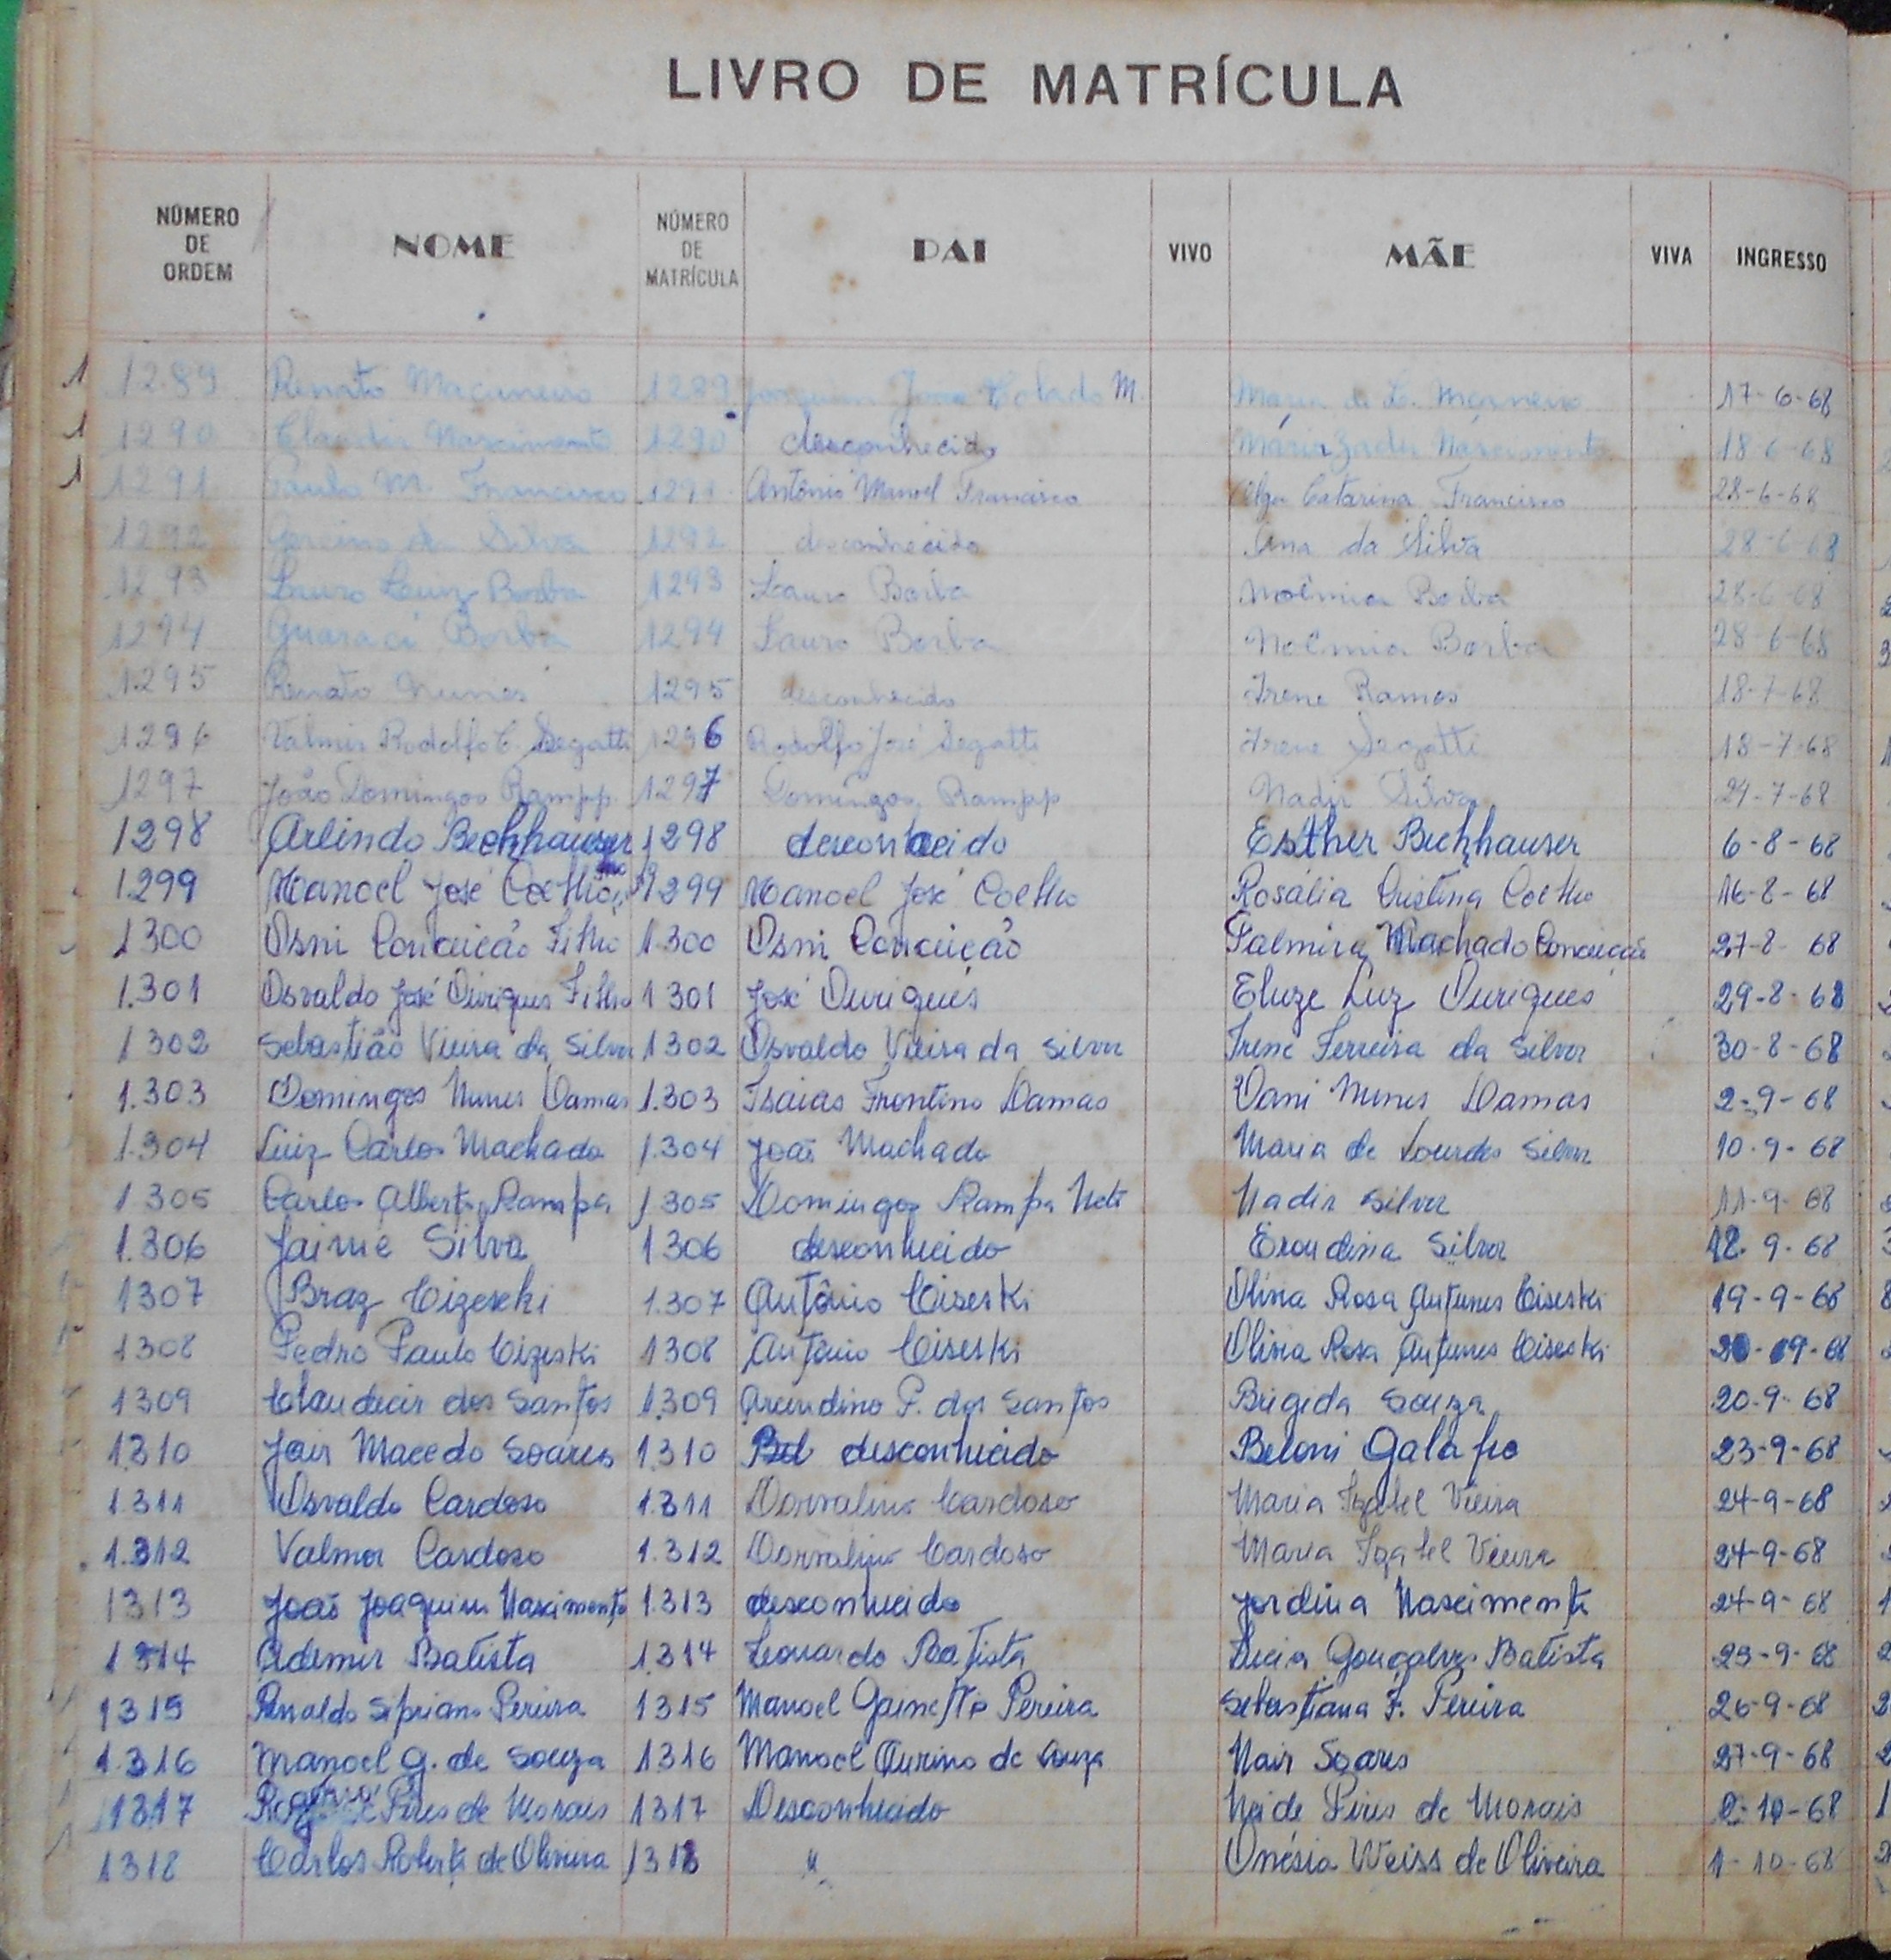 LIVRO DE MATRÍCULA
NÚMERO DE ORDEM NOME NÚMERO DE MATRÍCULA PAI VIVO MÃE VIVA INGRESSO
1 1289 Renato Maçaneiro 1289 João M. Maria de L. 17-6-68
1 1290 Claudir Nascimento 1290 desconhecido Maria Nascimento 18-6-68
1 1291 Paulo M. Francisco 1291 Antônio Manoel Francisco Olga Catarina Francisco 28-6-68
1292 da Silva 1292 desconhecido Ana da Silva 28-6-68
1293 Lauro Luiz Borba 1293 Lauro Borba Noêmia Borba 28-6-68
1294 Guaraci Borba 1294 Lauro Borba Noêmia Borba 28-6-68
1295 Renato Nunes 1295 desconhecido Irene Ramos 18-7-68
1296 Valmir Rodolfo C. Segatti 1296 Rodolfo José Segatti Irene Segatti 18-7-68
1297 João Domingos Rampp. 1297 Domingos Rampp Nadir Silva 24-7-68
1298 Arlindo Bechhauser 1298 desconhecido Esther Bechhauser 6-8-68
1299 Manoel José Coelho 1299 Manoel José Coelho Rosália Cristina Coelho 16-8-68
1300 Osni Conceição Filho 1.300 Osni Conceição Palmira Machado Conceição 27-8-68
1.301 Osvaldo José Ouriques Filho 1301 José Ouriques Eluze Luz Ouriques 29-8-68
1302 Sebastião Vieira da Silva 1302 Osvaldo Vieira da Silva Irene Ferreira da Silva 30-8-68
1.303 Domingos Nunes Damas 1.303 Isaias Frontino Damas Vani Nunes Damas 2-9-68
1.304 Luiz Carlos Machado 1.304 João Machado Maria de Lourdes Silva 10-9-68
1305 Carlos Alberto Rampa 1305 Domingos Rampa Neto Nadir Silva 11-9-68
1.306 Jaime Silva 1306 desconhecido Erondina Silva 12-9-68
1307 Braz Cizeski 1.307 Antônio Ciseski Olivia Rosa Antunes Ciseski 19-9-68
1308 Pedro Paulo Cizeski 1308 Antônio Ciseski Olivia Rosa Antunes Ciseski 09-68
1309 Claudecir dos Santos 1.309 P. dos Santos Brigida Souza 20-9-68
1310 Jair Macedo Soares 1.310 desconhecido Beloni Galafio 23-9-68
1.311 Osvaldo Cardoso 1.311 Dorvalino Cardoso Maria Izabel Vieira 24-9-68
1.312 Valmor Cardoso 1.312 Dorvalino Cardoso Maria Izabel Vieira 24-9-68
1313 João Joaquim Nascimento 1.313 desconhecido Jordina Nascimento 24-9-68
1314 Ademir Batista 1.314 Leonardo Batista Lucia Gonçalves Batista 25-9-68
1315 Renaldo Sipriano Pereira 1315 Manoel Pereira Sebastiana F. Pereira 26-9-68
1.316 Manoel G. de Souza 1316 Manoel Ourino de Souza Nair Soares 27-9-68
1317 Rogério Pires de Morais 1317 Desconhecido Neide Pires de Morais 2-10-68
1318 Carlos Roberto de Oliveira 1318 " Onésia Weiss de Oliveira 1-10-68